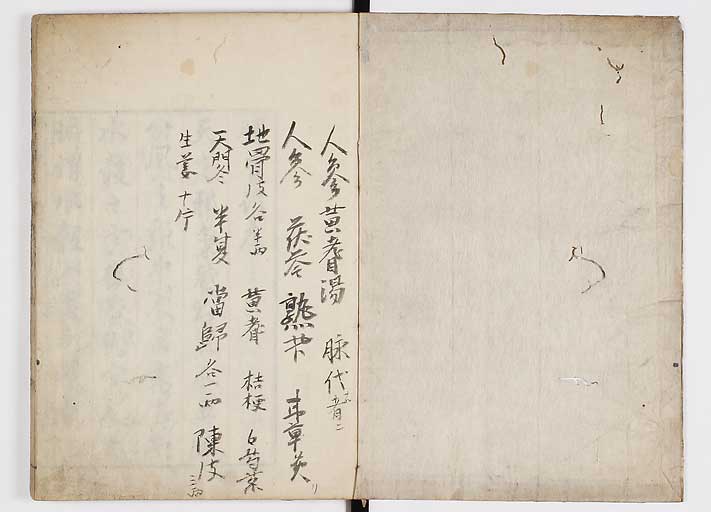 人參黄耆湯 脉代
人參 茯苓 熟芐 甘草炙
地骨皮各半両 黄耆 桔梗 白芍薬
天門冬 半夏 當歸各一両 陳皮二両
生姜 十片